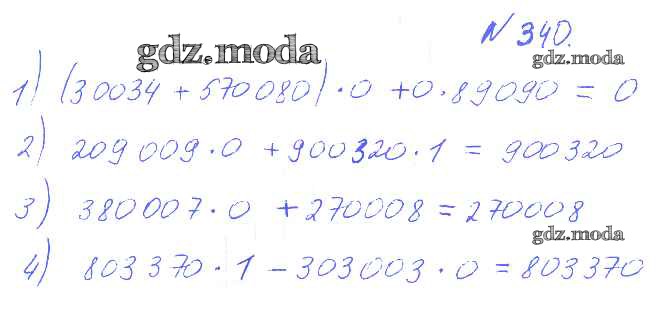 N 340.
gdz.moda
gdz.moda
1) (30034 + 570080) · 0 + 0 · 89090 = 0
2) 209 009 · 0 + 900320 · 1 = 900320
3) 380007 · 0 + 270008 = 270008
gdz.moda
4) 803370 · 1 - 303003 · 0 = 803370